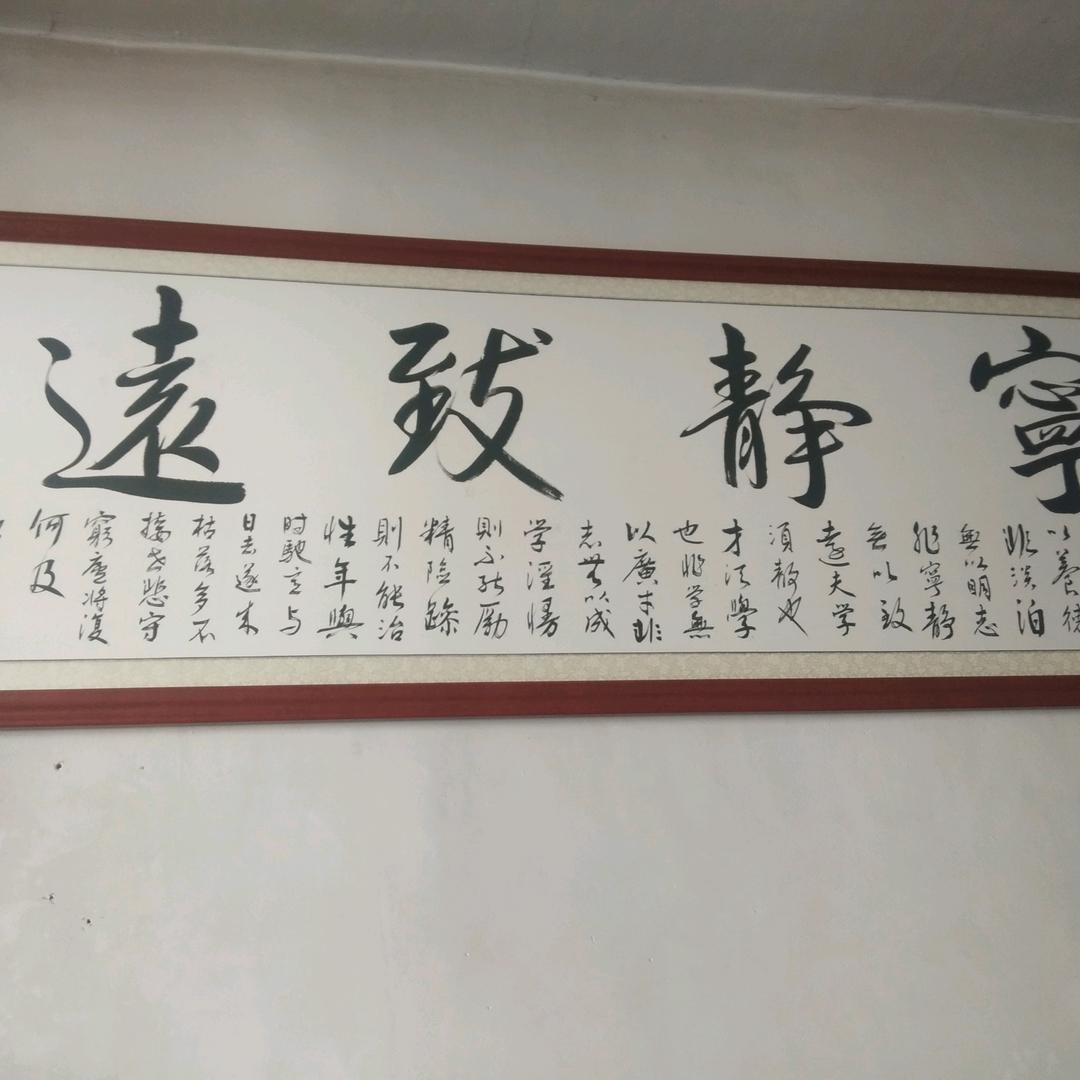 寧靜致遠
以養德
非淡泊
無以明志
非寧靜
無以致
遠夫学
須静也
才須學
也非学無
以廣才非
志無以成
学淫慢
則不能勵
精險躁
則不能治
性年與
时馳意与
日去遂成
枯落多不
接世悲守
窮廬将復
何及